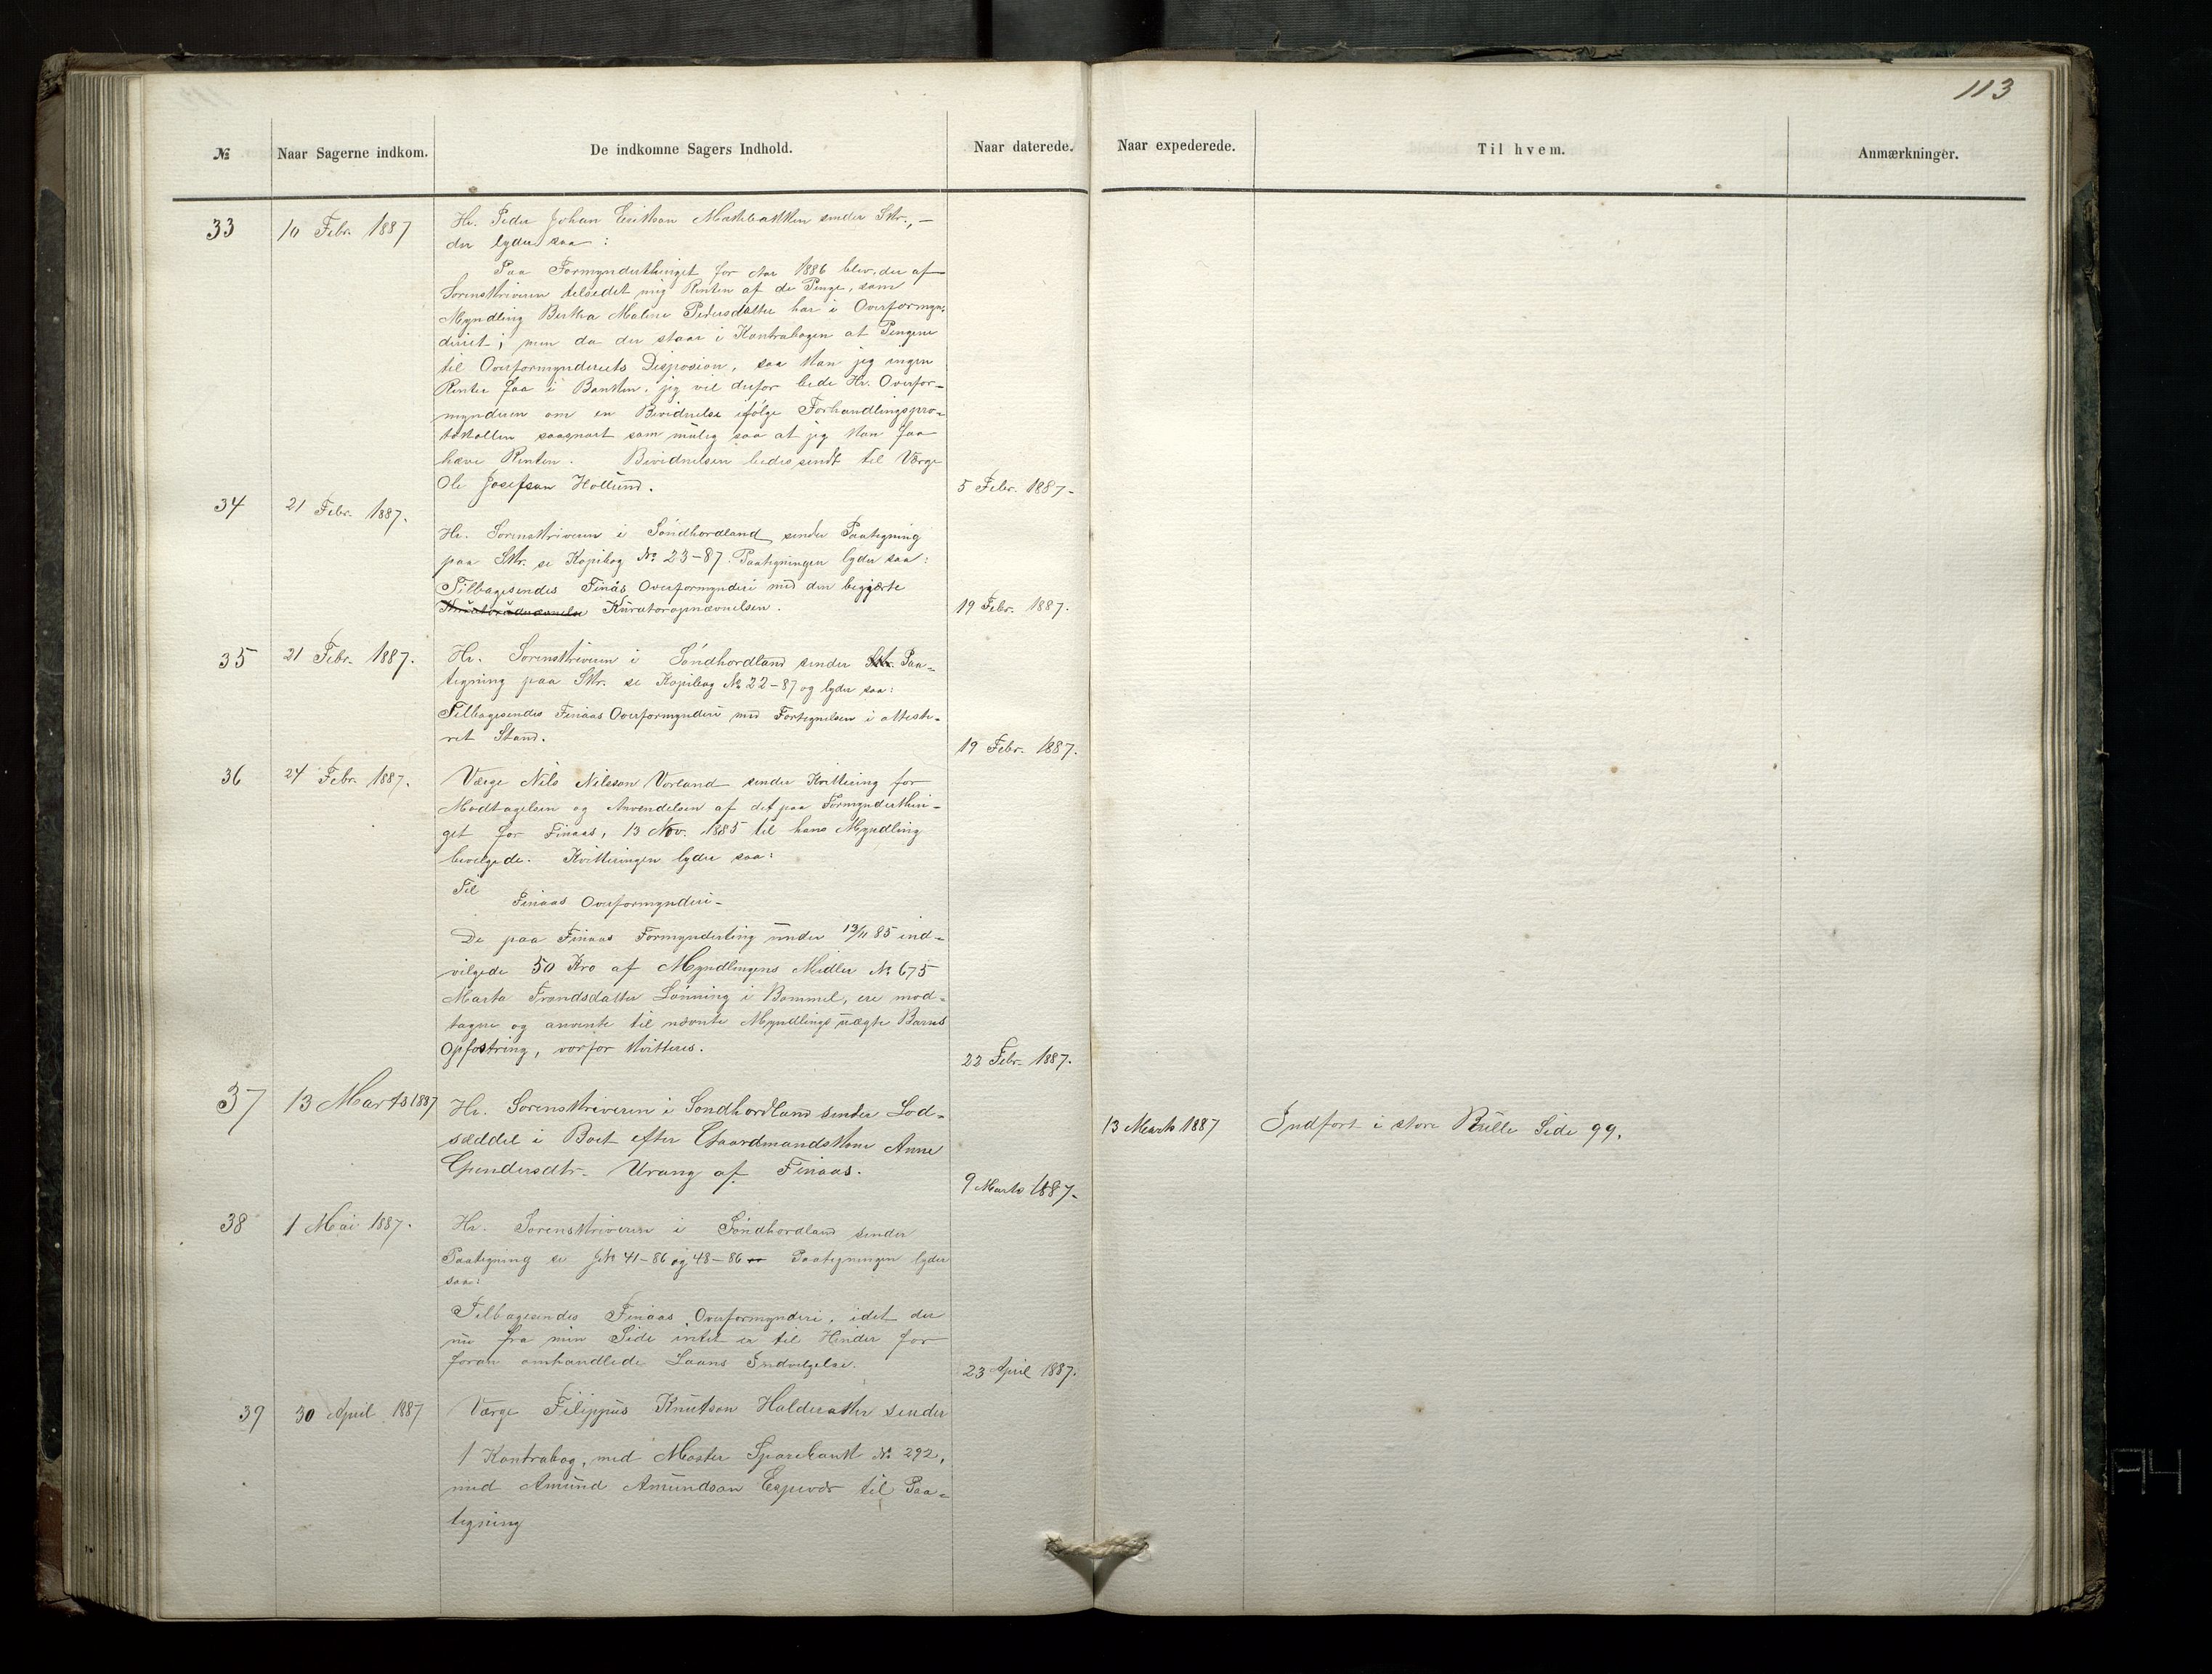 113
№ Naar Sagerne indkom. De indkomne Sagers Indhold. Naar daterede. Naar expederede. Til hvem. Anmærkninger.
33 10 Febr. 1887 Hr. Peder Johan Erikson sender Skr., —
der lyder saa:
Paa Formynderthinget for Aar 1886 blev der af
Sorenskriveren telsedet mig Renten af de Penge, som
Myndling Bertha Maline Pedersdatter har i Overformyn-
deriet; men da der staar i Kontrabogen at Pengene
til Overformynderiets Disposion, saa kan jeg ingen
Renter faa i Banken, jeg vil derfor bede Hr. Overfor-
mynderen om en Bevidnelse ifølge Forhandlingspro-
tokollen saasnart som mulig saa at jeg kan faa
hæve Renten. Bevidnelsen bedes sendt til Værge
Ole Josefson Hollund. 5 Febr. 1887-
34 21 Febr. 1887.
Hr. Sorenskriveren i Söndhordland sender Paategning
paa Skr. se Kopibog № 23-87. Paategningen lyder saa:
Tilbagesendes Finås Overformynderi med den begjærte
Kuratoropnævnelsen. 19 Febr. 1887.
35 21 Febr. 1887. Hr. Sorenskriveren i Söndhordland sender Skr. Paa-
tegning paa Skr. se Kopibog № 22-87 og lyder saa:
Tilbagesendes Finaas Overformynderi med Fortegnelsen i atteste-
ret Stand. 19 Febr. 1887.
36 24 Febr. 1887. Værge Nils Nilsson Vorland sender Kvittering for
Modtagelsen og Anvendelsen af det paa Formynderthin-
get for Finaas, 13 Nov. 1885 til hans Myndling
bevelgede. Kvitteringen lyder saa:
Til
Finaas Overformynderi-
De paa Finaas Formynderting under 13/11 85 ind-
vilgede 50 Kro af Myndlingens Midler № 675
Marta Trondsdatter Lönning i Bommel, ere mod-
tagne og anvente til nævnte Myndlings uægte Barns
Opfostring, vorfor kvitteres. 22 Febr. 1887.
37 13 Marts 1887 Hr. Sorenskriveren i Söndhordland sender Lod-
sæddel i Boet efter Gaardmandskone Anne
Gundersdtr. Urang af Finaas. 9 Marts 1887-
13 Marts 1887 Indført i store Rulle Side 99.
38 1 Mai 1887. Hr. Sorenskriveren i Söndhordland sender
Paategning se J№ 41-86 og 48-86 Paategningen lyder
saa:
Tilbagesendes Finaas Overformynderi, idet der
nu fra min Side intet er til Hinder for
foran omhandlede Laans Indvelgelse. 23 April 1887.
39 30 April 1887 Værge Filippus Knutson Halderaker sender
1 Kontrabog, med Moster Sparebank № 292,
med Amund Amundson Espevær til Paa-
tegning